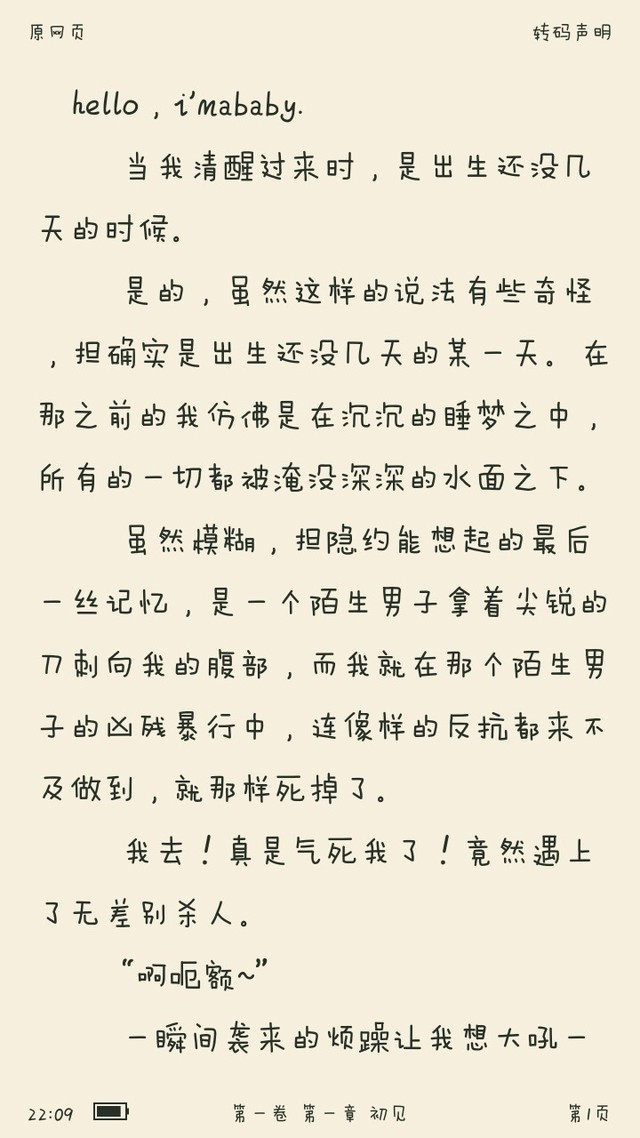 原网页 转码声明
hello，i'mababy.
当我清醒过来时，是出生还没几
天的时候。
是的，虽然这样的说法有些奇怪
，担确实是出生还没几天的某一天。 在
那之前的我仿佛是在沉沉的睡梦之中，
所有的一切都被淹没深深的水面之下。
虽然模糊，担隐约能想起的最后
一丝记忆，是一个陌生男子拿着尖锐的
刀刺向我的腹部，而我就在那个陌生男
子的凶残暴行中，连像样的反抗都来不
及做到，就那样死掉了。
我去！真是气死我了！竟然遇上
了无差别杀人。
“啊呃额~”
一瞬间袭来的烦躁让我想大吼一
22:09 第一卷 第一章 初见 第1页